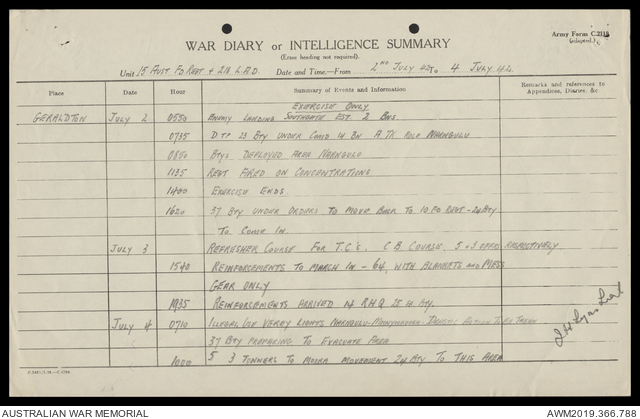 Army Form C.2118
(adapted.)
WAR DIARY or INTELLIGENCE SUMMARY
(Erase heading not required).
Unit 15 AUST FD REGT + 211 L.A.D. Date and Time.—From 2ND JULY 42 To 4 JULY 42.
Place Date Hour Summary of Events and Information Remarks and references to Appendices, Diaries, &c.
EXERCISE ONLY
GERALDTON JULY 2 0550 ENEMY LANDING SOUTHGATE EST. 2 BNS.
0735 D TP 23 BTY UNDER COMD 14 BN A TK ROLE NARNGULU
0850 BTYS DEPLOYED AREA NARNGULU
1135 REGT FIRED ON CONCENTRATIONS
1400 EXERCISE ENDS.
1620 37 BTY UNDER ORDERS TO MOVE BACK TO 10 FD REGT - 24 BTY
TO COME IN.
JULY 3 REFRESHER COURSE FOR T.C's. C B COURSE. 5 + 3 RESPECTIVELY
1540 REINFORCEMENTS TO MARCH IN - 64, WITH BLANKETS AND MESS
GEAR ONLY
1935 REINFORCEMENTS ARRIVED 14 RHQ 25 BTY.
JULY 4 0710 ILLEGAL USE VEREY LIGHTS NARNGULU - ACTION TO BE TAKEN
37 BTY PREPARING TO EVACUATE AREA
1000 5 3 TONNERS TO MOORA MOVEMENT 24 BTY TO THIS AREA
AUSTRALIAN WAR MEMORIAL AWM2019.366.788